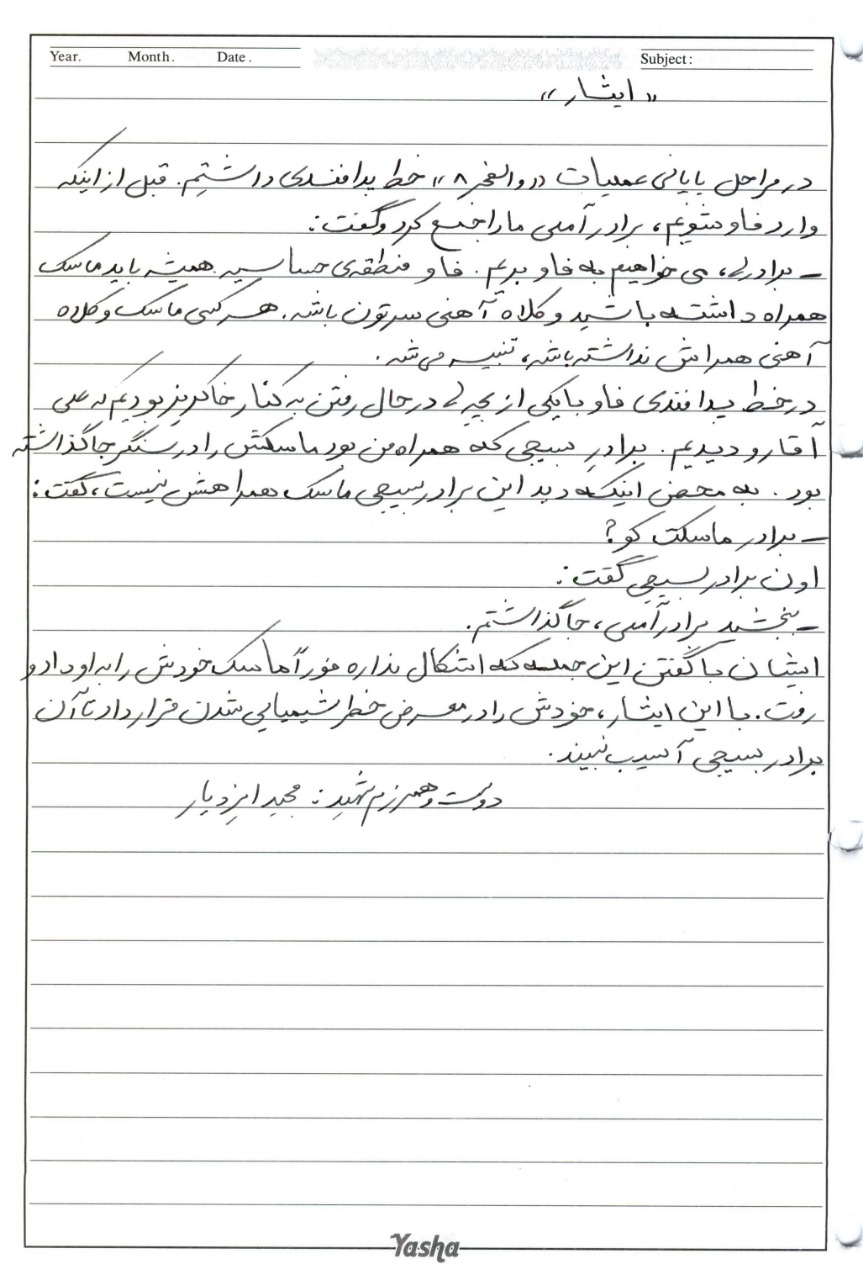 Year. Month. Date. Subject:
«ایثار»
در مراحل پایانی عملیات «والفجر ۸» خط پدافندی داشتیم. قبل از اینکه
وارد فاو شویم، برادر آملی ما را جمع کرد و گفت:
- برادرا، می خواهیم به فاو بریم. فاو منطقه‌ی حساسیه. همیشه باید ماسک
همراه داشته باشید و کلاه آهنی سرتون باشه. هر کسی ماسک و کلاه
آهنی همراش نداشته باشه، تنبیه می شه.
در خط پدافندی فاو با یکی از بچه ها در حال رفتن به کنار خاکریز بودیم که علی
آقا رو دیدیم. برادرِ بسیجی که همراه من بود ماسکش را در سنگر جا گذاشته
بود. به محض اینکه دید این برادر بسیجی ماسک همراهش نیست، گفت:
- برادر ماسکت کو؟
اون برادر بسیجی گفت:
- ببخشید برادر آملی، جا گذاشتم.
ایشان با گفتن این جمله که اشکال نداره فوراً ماسک خودش را به او داد و
رفت. با این ایثار، خودش را در معرض خطر شیمیایی شدن قرار داد تا آن
برادر بسیجی آسیب نبیند.
دوست و همرزم شهید: مجید ایزدیار
Yasha